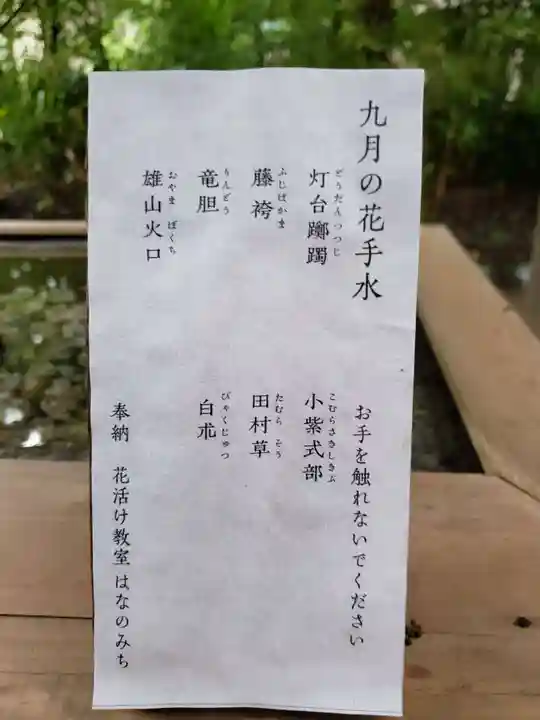 九月の花手水
お手を触れないでください
灯台躑躅
どうだんつつじ
小紫式部
こむらさきしきぶ
藤袴
ふじばかま
田村草
たむら そう
竜胆
りんどう
白朮
びゃくじゅつ
雄山火口
おやま ぼくち
奉納 花活け教室 はなのみち